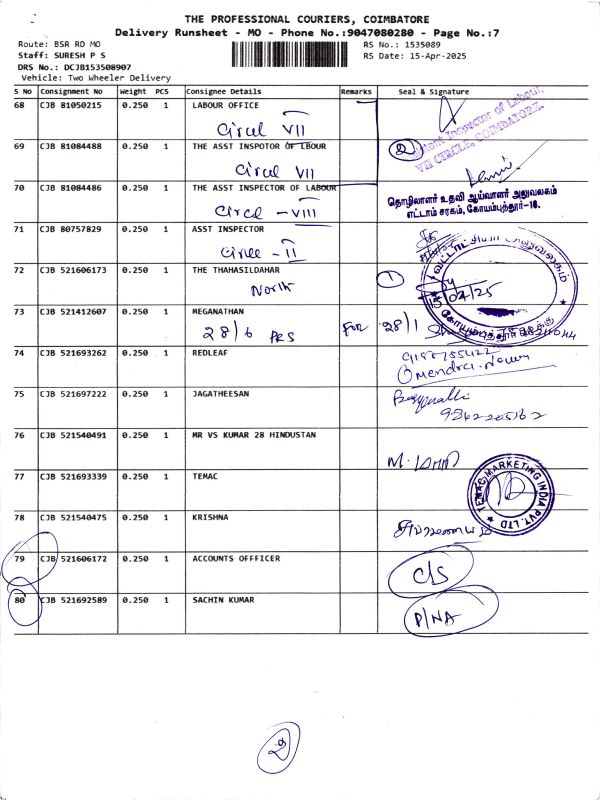 THE PROFESSIONAL COURIERS, COIMBATORE
Delivery Runsheet - MO - Phone No.:9047080280 - Page No.:7
Route: BSR RD MO
Staff: SURESH P S
DRS No.: DCJB153508907
Vehicle: Two Wheeler Delivery
RS No.: 1535089
RS Date: 15-Apr-2025
S No Consignment No Weight PCS Consignee Details Remarks Seal & Signature
68 CJB 81050215 0.250 1 LABOUR OFFICE
Circul VII
69 CJB 81084488 0.250 1 THE ASST INSPOTOR OF LBOUR
Circul VII
2
Assistant Inspector of Labour,
VII CIRCLE, COIMBATORE.
70 CJB 81084486 0.250 1 THE ASST INSPECTOR OF LABOUR
Circul - VIII
தொழிலாளர் உதவி ஆய்வாளர் அலுவலகம்
எட்டாம் சரகம், கோயம்புத்தூர்-18.
71 CJB 80757829 0.250 1 ASST INSPECTOR
Circle - II
72 CJB 521606173 0.250 1 THE THAHASILDAHAR
North
1
15/04/25
73 CJB 521412607 0.250 1 MEGANATHAN
28/6 PRS FOR 28/1
74 CJB 521693262 0.250 1 REDLEAF
75 CJB 521697222 0.250 1 JAGATHEESAN
76 CJB 521540491 0.250 1 MR VS KUMAR 28 HINDUSTAN
77 CJB 521693339 0.250 1 TEMAC
M. மணி
TEMAC MARKETING INDIA PVT. LTD
78 CJB 521540475 0.250 1 KRISHNA
79 CJB 521606172 0.250 1 ACCOUNTS OFFFICER
C/S
80 CJB 521692589 0.250 1 SACHIN KUMAR
P/NA